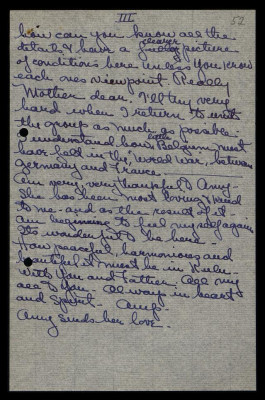 III
52
how can you know all the
details & have a clearer picture
of conditions here unless you know
each ones viewpoint. Really
Mother dear. I'll try very
hard when I return to write
the group as much as possible.
I understand better how Belgium must
have felt in the World War, between
Germany and France.
Am very, very thankful Amy.
She has been most loving & kind
to me and as the result of it
am beginning to feel myself again
Its wonderful to be here
How peaceful, harmonious and
beautiful it must be in
with you and Father. All my
all to you. Always in heart
and spirit.
Amy sends her love.